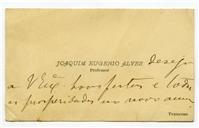 JOAQUIM EUGENIO ALVES deseja
Professor
a V Exª boas festas e todas
as prosperidades no novo anno